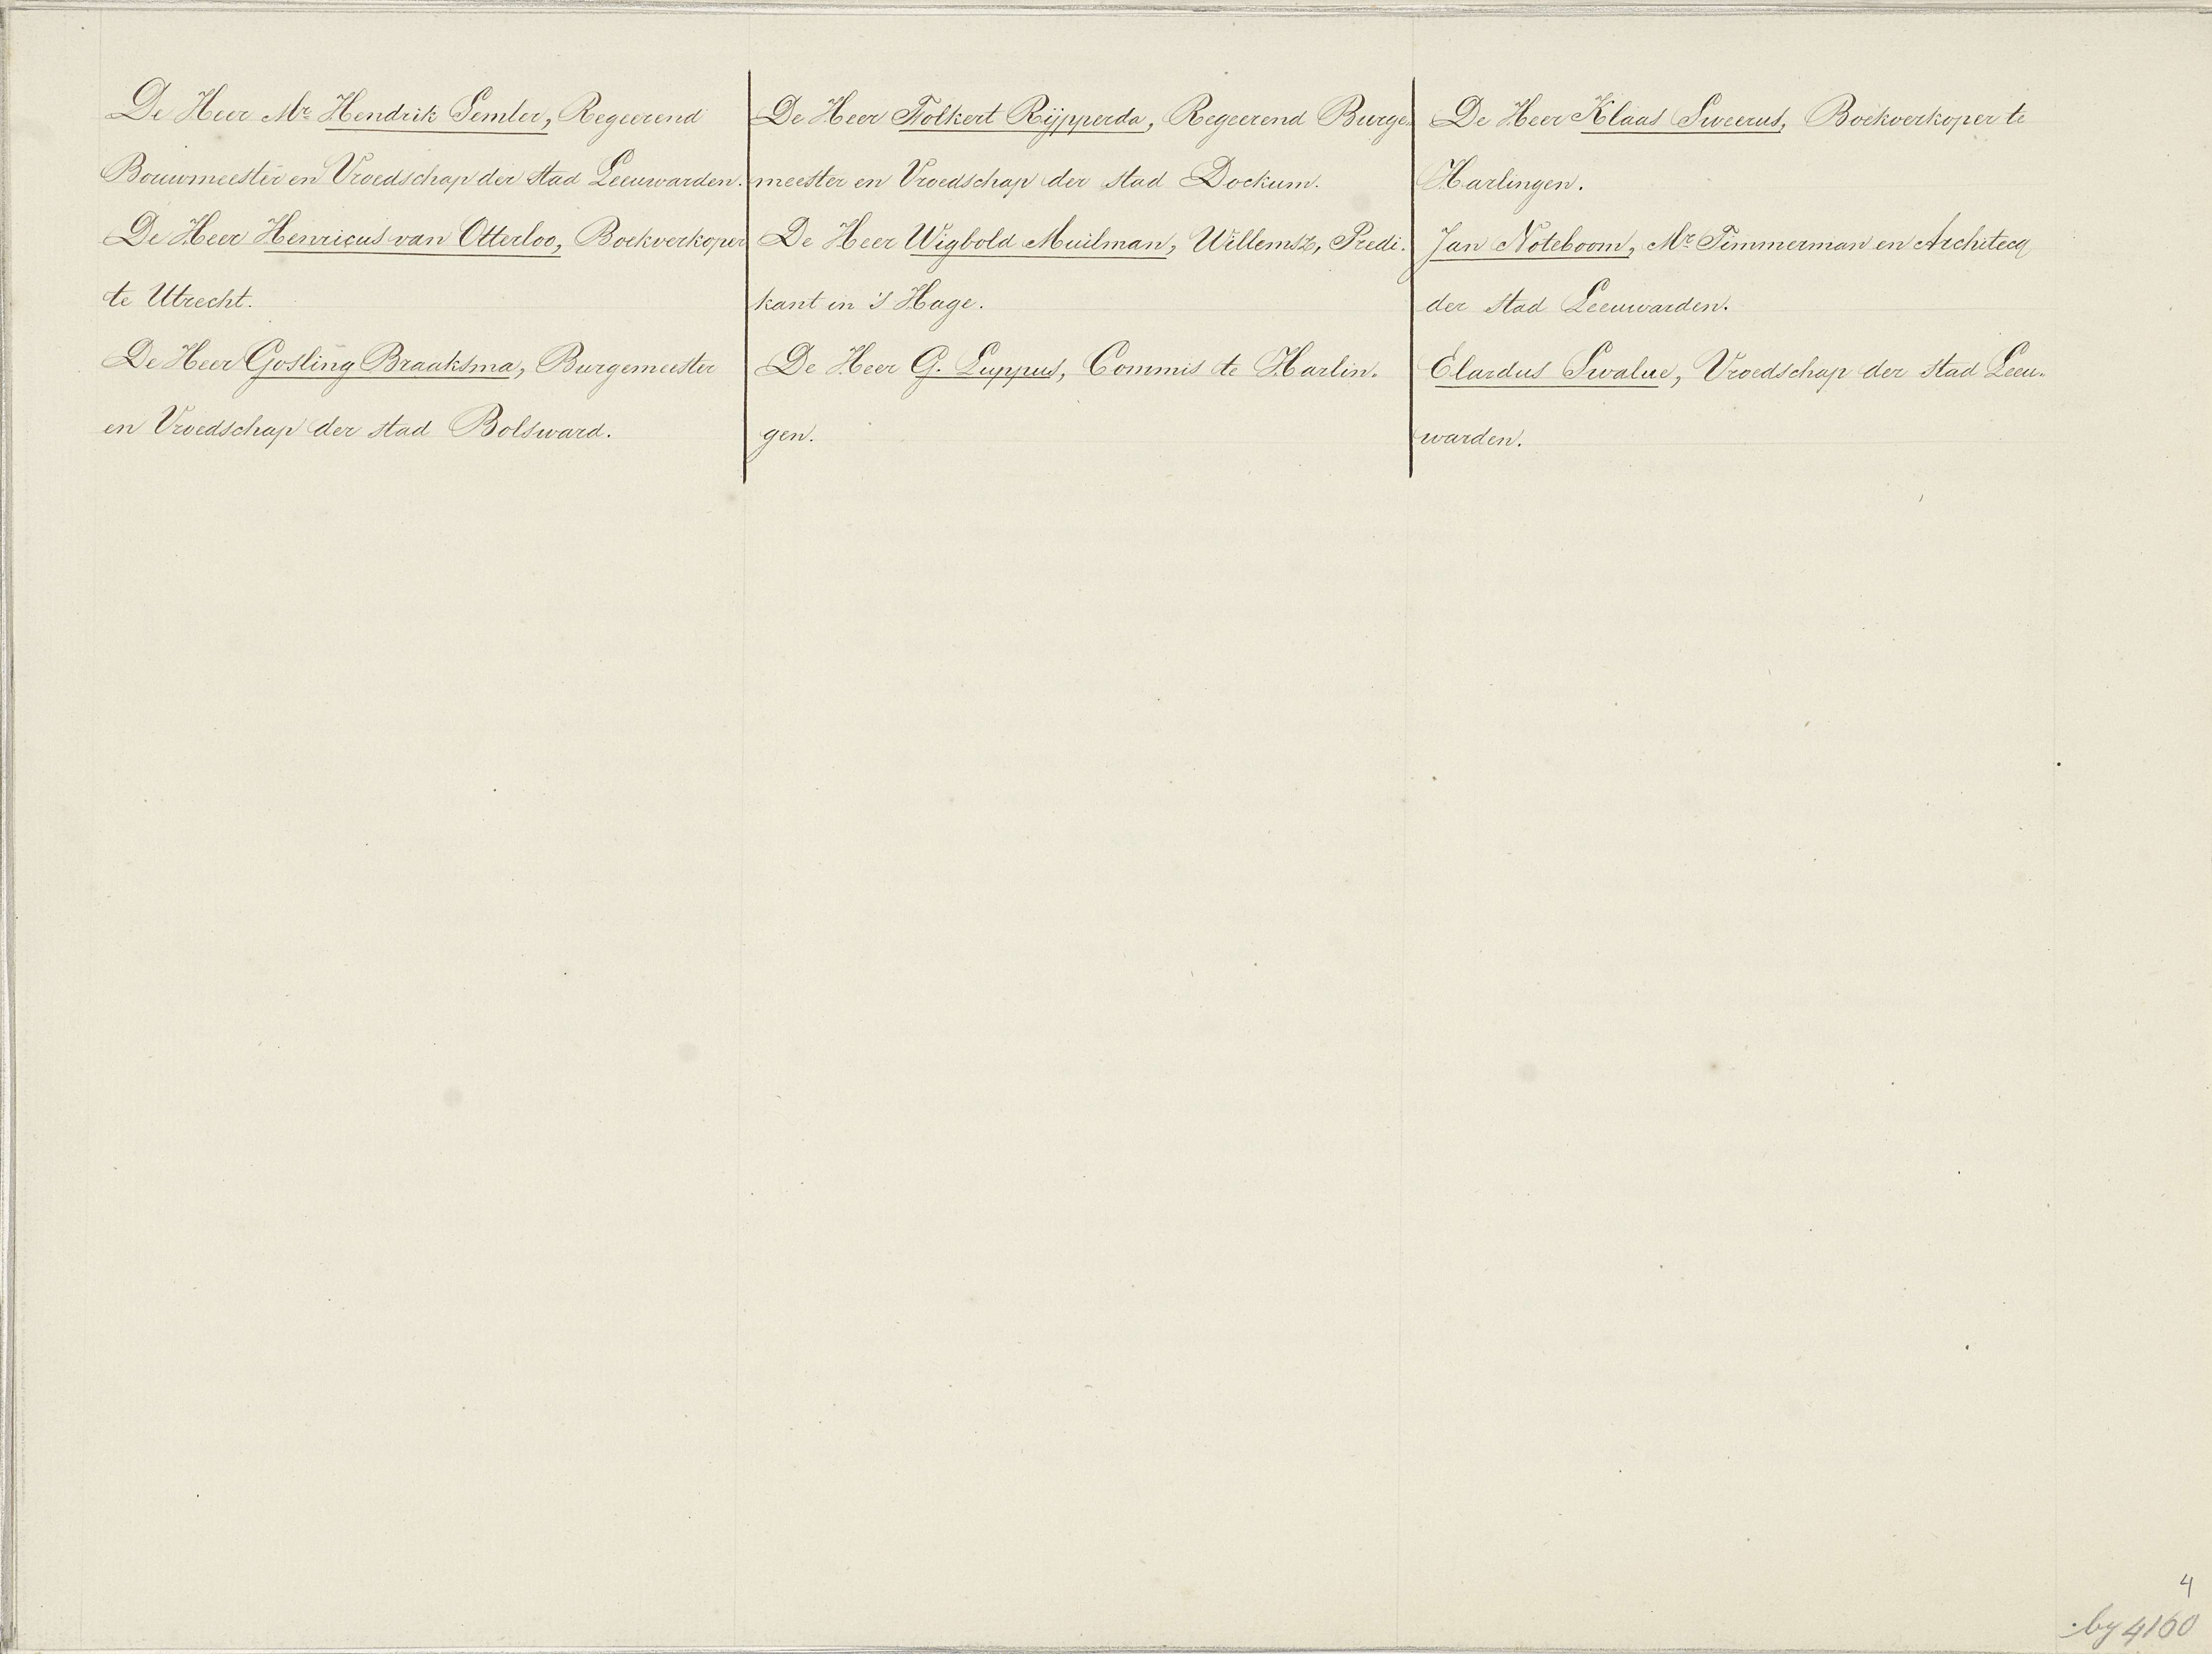 De Heer Mr. Hendrik Semler, Regeerend
Bouwmeester en Vroedschap der stad Leeuwarden.
De Heer Henricus van Otterloo, Boekverkoper
te Utrecht.
De Heer Gosling Braaksma, Burgemeester
en Vroedschap der stad Bolsward.
De Heer Folkert Rijpperda, Regeerend Burge-
meester en Vroedschap der stad Dockum.
De Heer Wigbold Muilman, Willemsz, Predi-
kant in 's Hage.
De Heer G. Luppus, Commis te Harlin-
gen.
De Heer Klaas Sweerus, Boekverkoper te
Harlingen.
Jan Noteboom, Mr. Timmerman en Architecq
der stad Leeuwarden.
Elardus Swalue, Vroedschap der stad Leeu-
warden.
4
by 4160